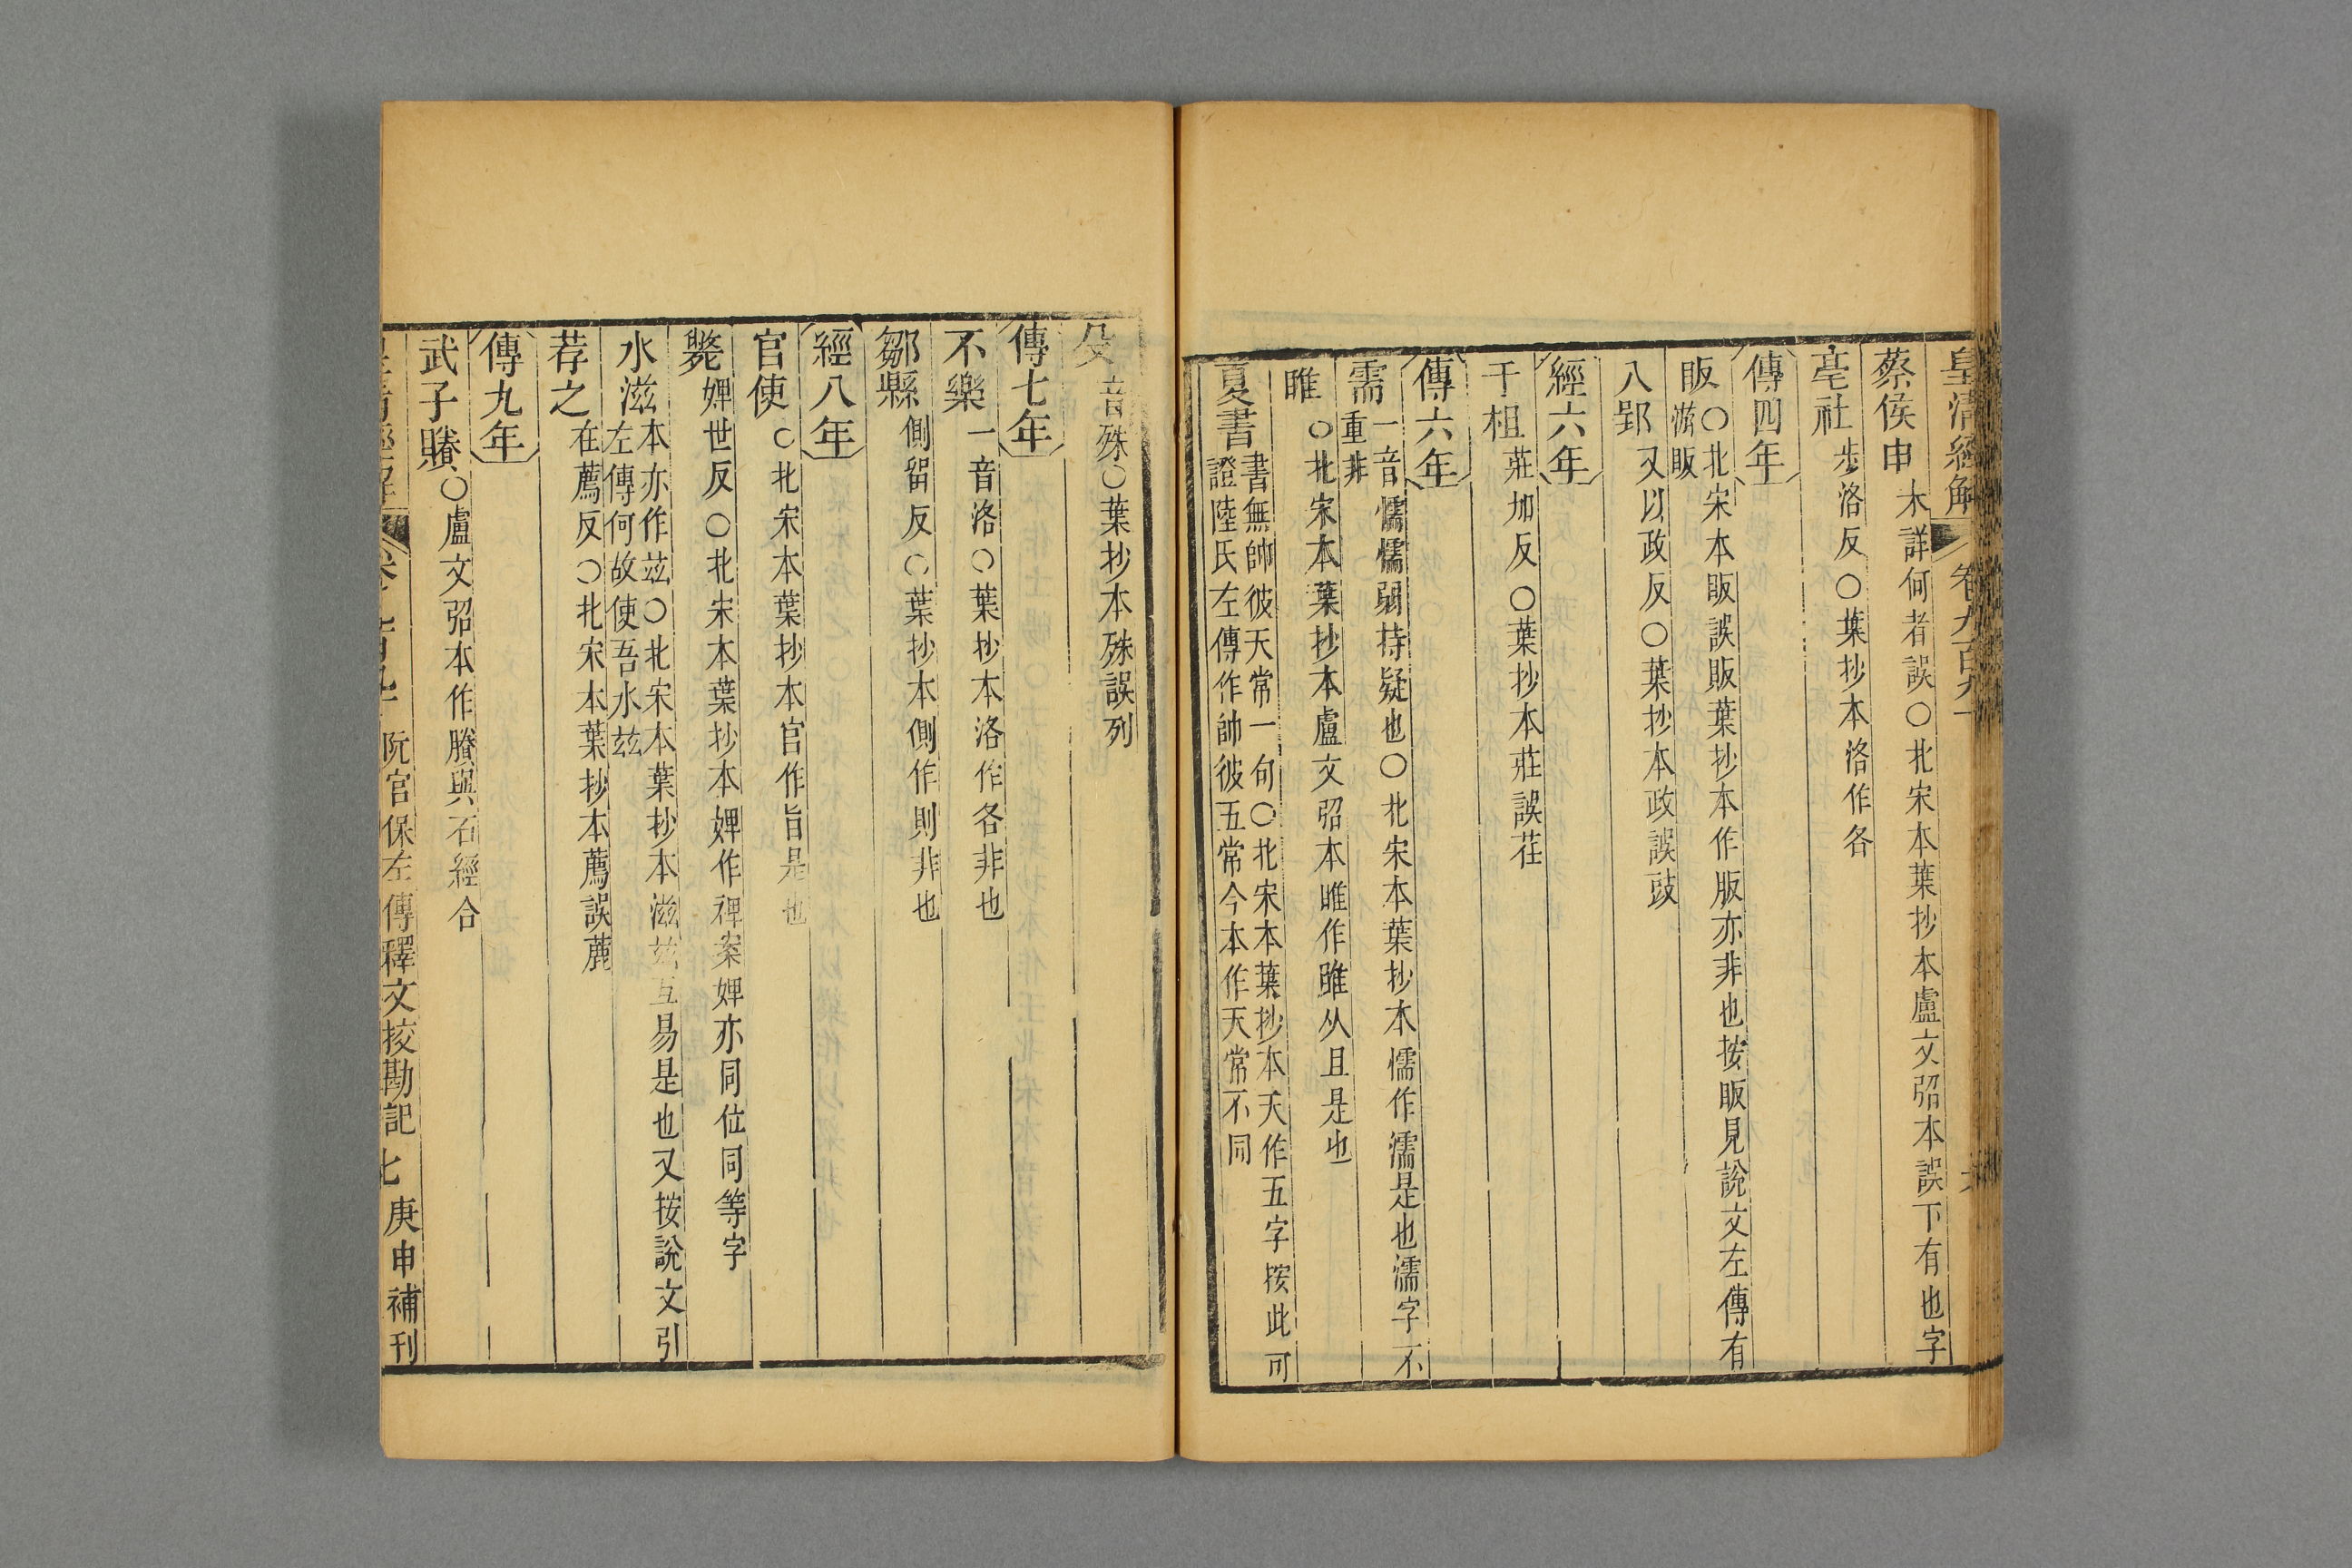 皇清經解 卷九百九
蔡侯申 未詳何者誤○北宋本葉抄本盧文弨本誤下有也字
亳社 步洛反○葉抄本洛作各
傳四年
眅 ○北宋本眅誤販葉抄本作版亦非也按眅見說文左傳有
游眅
八郢 又以政反○葉抄本政誤豉
經六年
于柤 莊加反○葉抄本莊誤荘
傳六年
需 一音懦懦弱持疑也○北宋本葉抄本懦作濡是也濡字不
重非
睢 ○北宋本葉抄本盧文弨本睢作雎从且是也
夏書 書無帥彼天常一句○北宋本葉抄本天作五字按此可
證陸氏左傳作帥彼五常今本作天常不同
殳 音殊○葉抄本殊誤列
傳七年
不樂 一音洛○葉抄本洛作各非也
鄒縣 側留反○葉抄本側作則非也
經八年
官使 ○北宋本葉抄本官作旨是也
斃 婢世反○北宋本葉抄本婢作裨案婢亦同位同等字
水滋 本亦作玆○北宋本葉抄本滋玆互易是也又按說文引
左傳何故使吾水玆
荐之 在薦反○北宋本葉抄本薦誤麃
傳九年
武子賸 ○盧文弨本作賸與石經合
皇清經解 阮官保左傳釋文挍勘記 七 庚申補刊